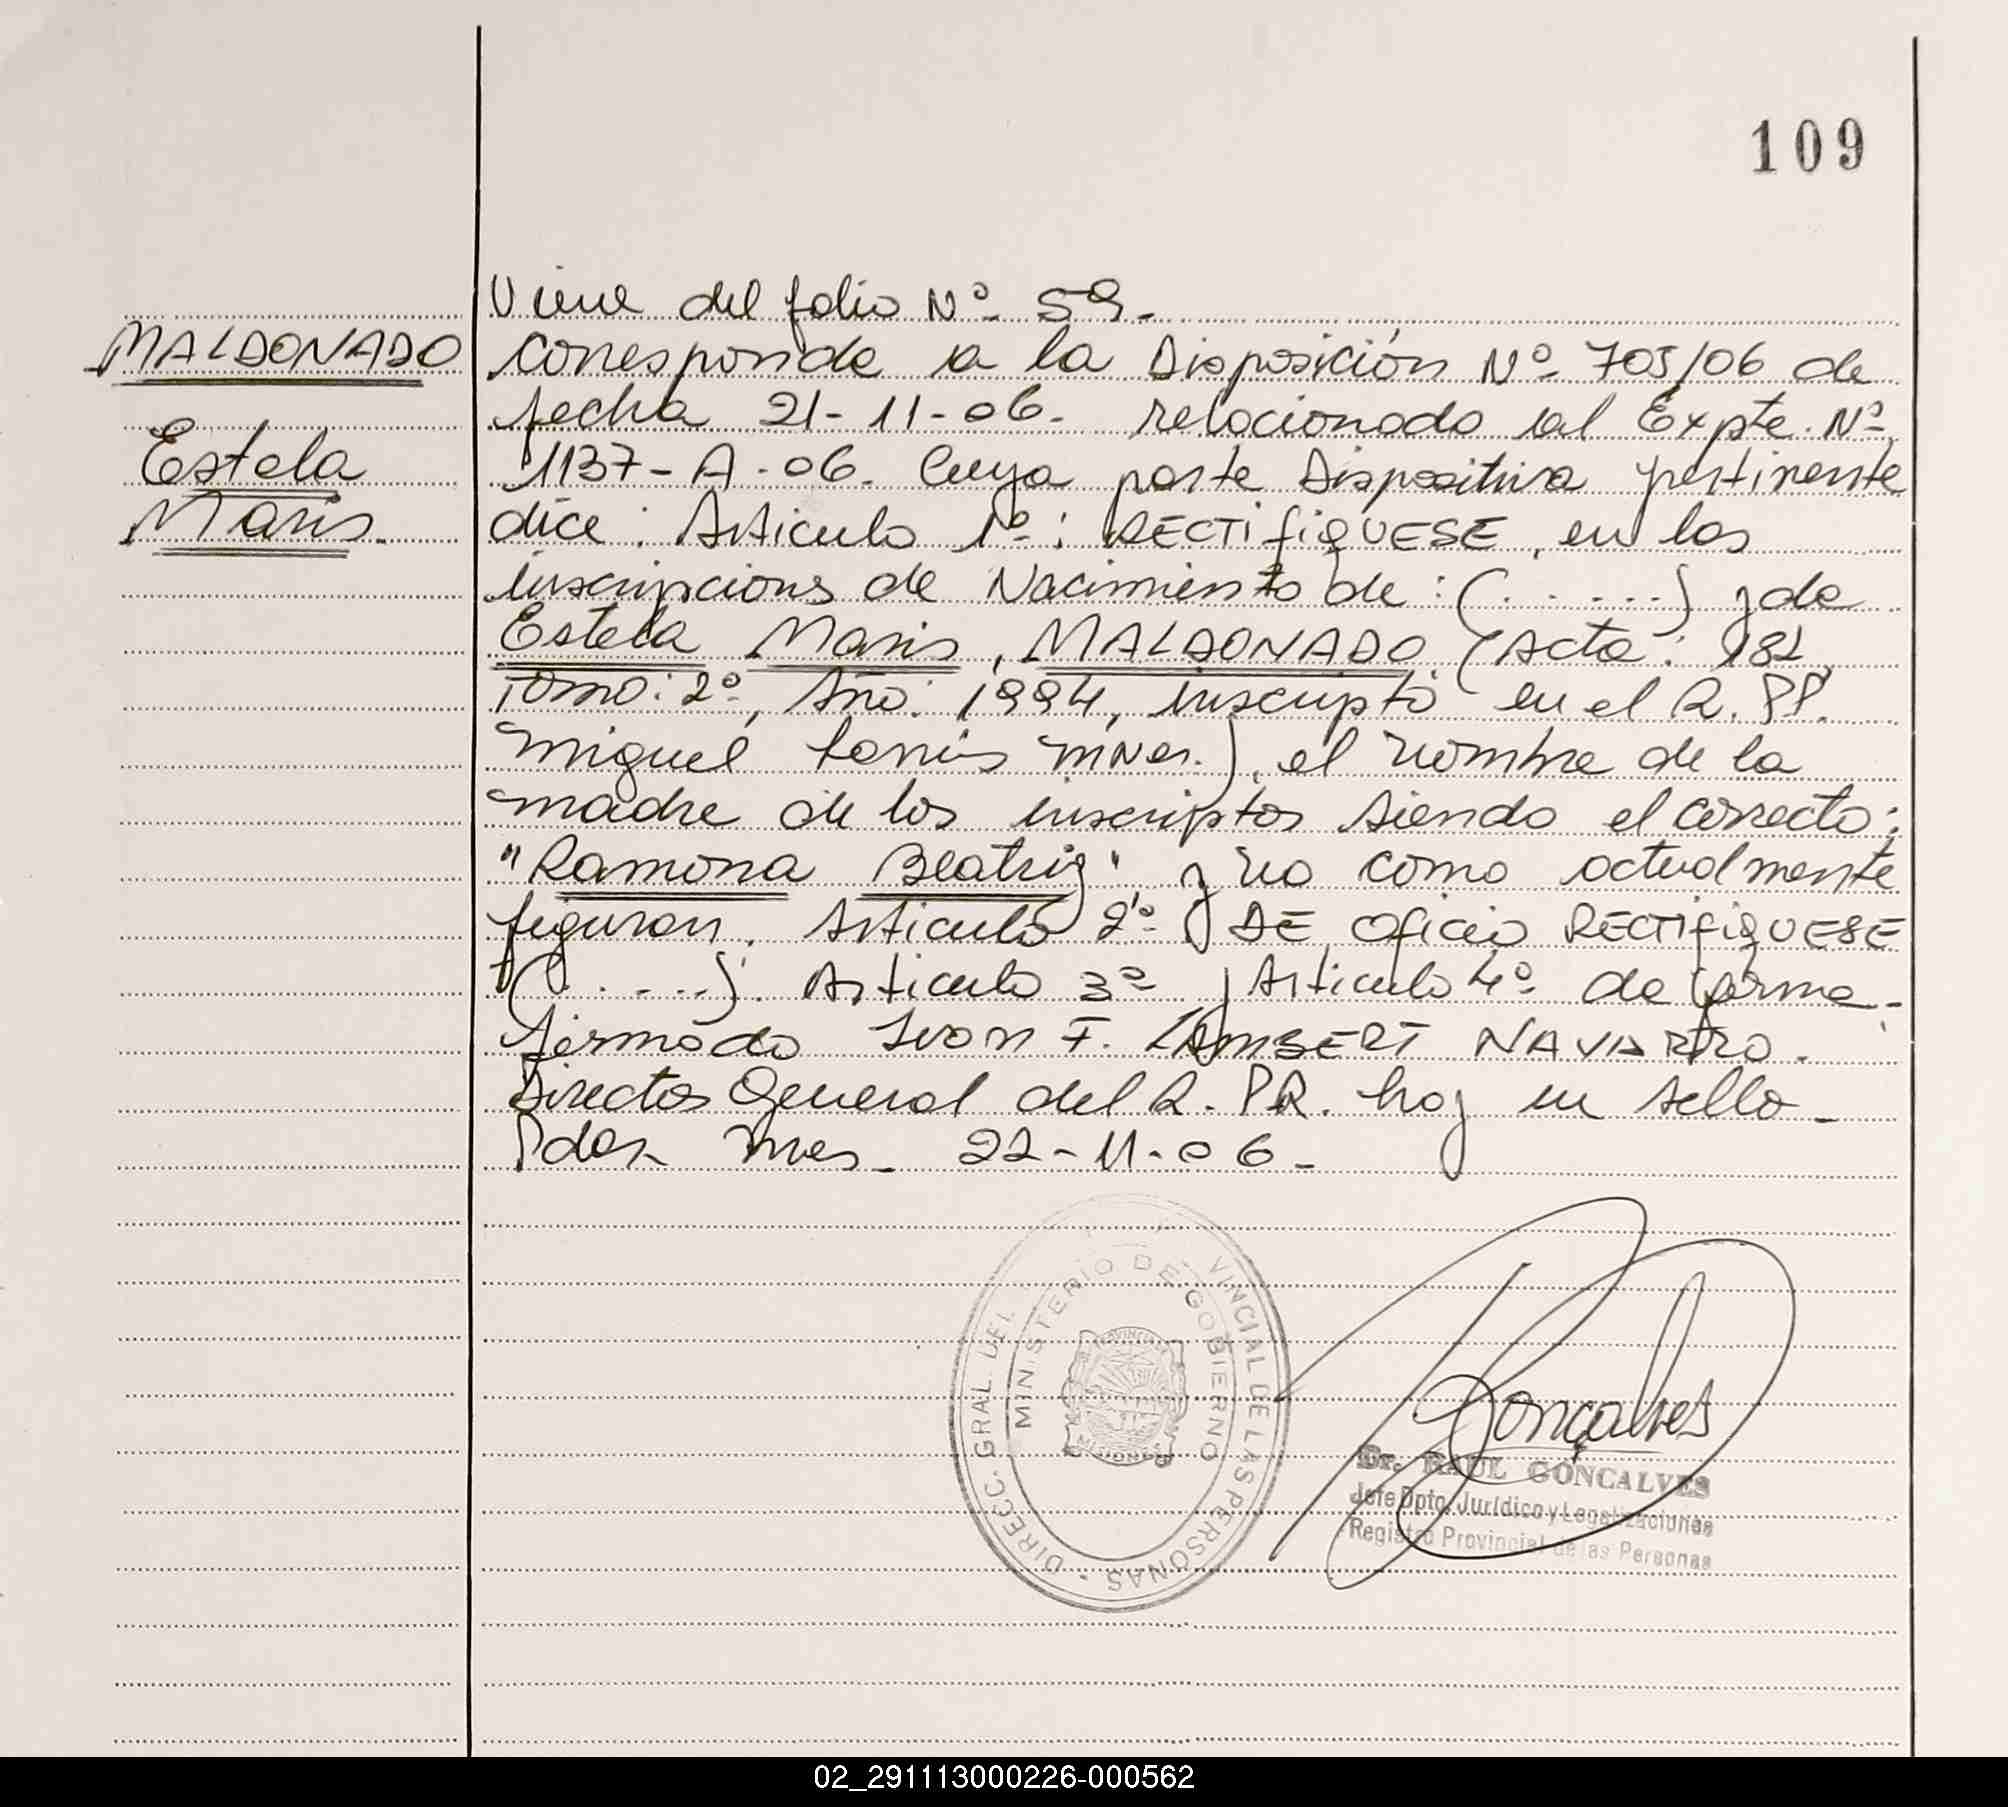 109
Viene del folio Nº 59.
MALDONADO
Corresponde a la Disposición Nº 705/06 de
fecha 21-11-06. relacionado al Expte. Nº
Estela
1137-A-06. Cuya parte Dispositiva pertinente
Maris.
dice: Articulo 1º: RECTIFIQUESE, en las
inscripciones de Nacimiento de: (......) y de
Estela Maris, MALDONADO (Acta: 182,
Tomo: 2º, Año: 1994, inscripto en el R.PP.
Miguel Lanús Mnes.), el nombre de la
madre de los inscriptos siendo el correcto:
"Ramona Beatriz" y no como actualmente
figuran. Articulo 2º DE Oficio RECTIFIQUESE
(......). Articulo 3º y Articulo 4º de forma.
firmado Ivan F. LAMBERT NAVARRO.
Director General del R.PR. hay un sello.
Pdas. Mnes. 22-11-06.
DIRECC. GRAL. DEL VINCIAL DE LAS PERSONAS
MINISTERIO DE GOBIERNO
PROVINCIA
MISIONES
Gonçalves
Dr. RAUL GONCALVES
Jefe Dpto. Jurídico y Legalizaciones
Registro Provincial de las Personas
02_291113000226-000562